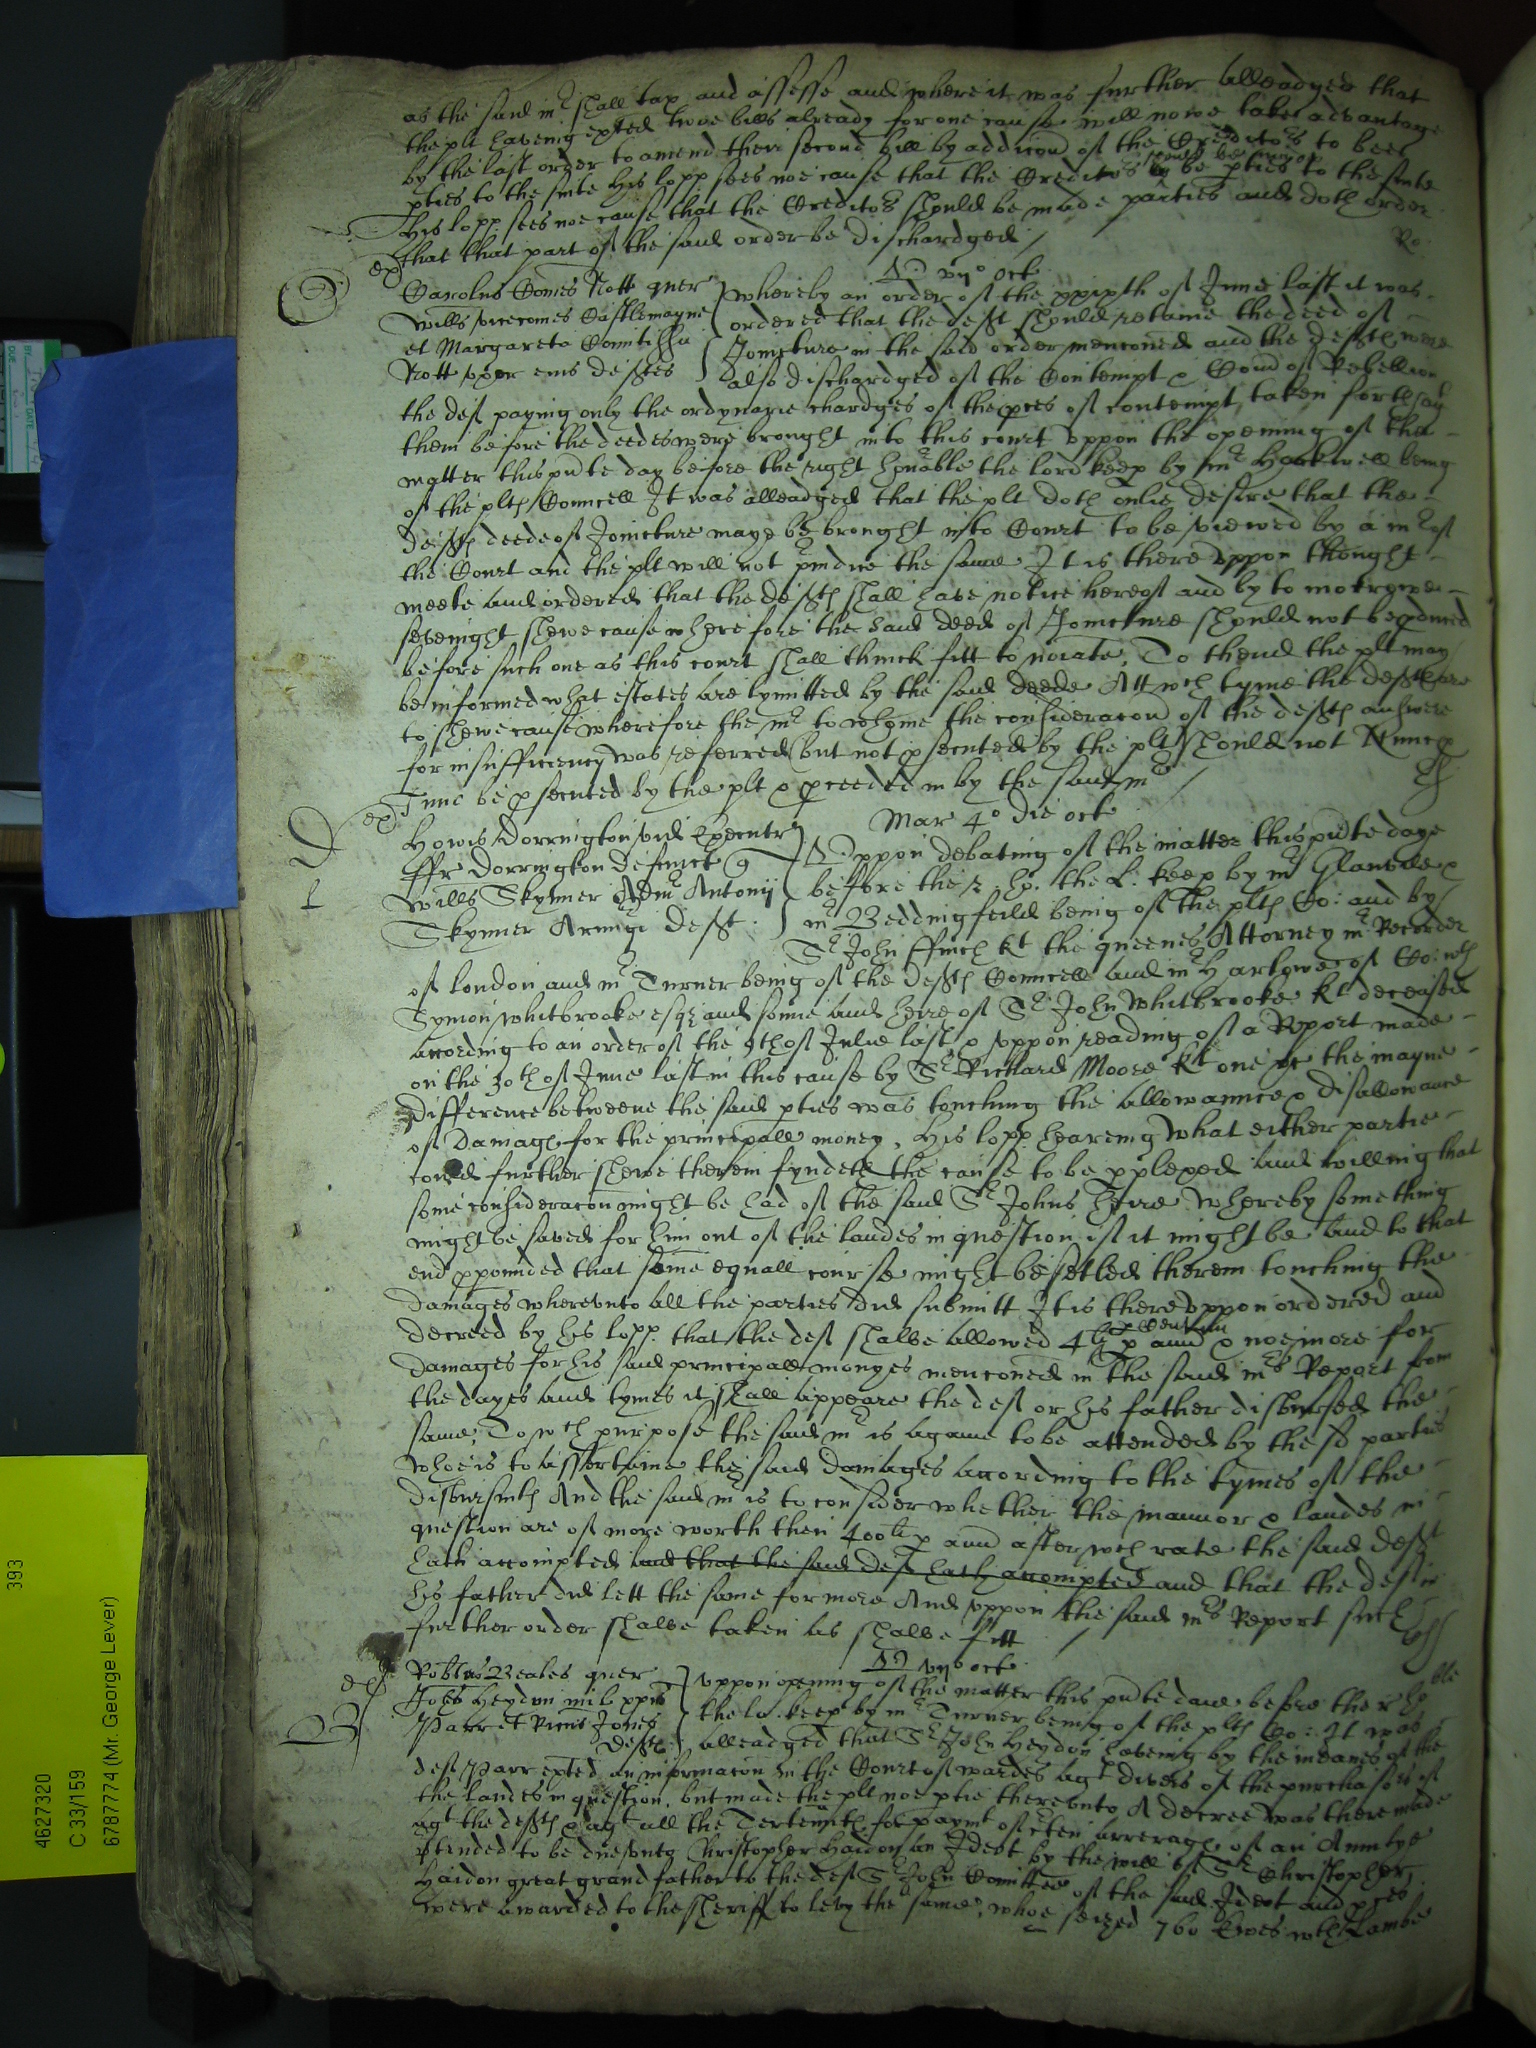 as the said mr shall tax and assesse and where it was further alleadged that
the plt haveing exhted twoe bills already for one cause will nowe take advantage
by the last order to amend their second bill by addicon of the Creditors to bee
pties to the suite His lopp sees noe cause that the Creditors should be pties to the suite
His lopp. sees noe cause that the Creditors should be made parties and doth order
that that part of the said order be dischardged /
Ro:
ex
vijo Oct
Carolus Comes Nott quer
Willus vicecomes Castlemayne
et Margareta Comitissa
Nott uxor eius deftes
Whereby an order of the xxixth of June last it was
ordered that the deft should retaine the deed of
Joincture in the said order menconed and the defts were
also dischardged of the Contempt & Comd of Rebellion
the deft paying only the ordynarie chardges of the pces of contempt taken forth agt
them before the deedes were brought into this court uppon the opening of the
matter this pnte day before the right honable the lord keep by mr Hackwell being
of the plts Councell It was alleadged that the plt doth onlie desire that the
defts deede of Joincture maye be brought into Court to be viewed by a mr of
the Court and the plt will not pindice the same It is thereuppon thought
meete and ordered that the defts shall have notice hereof and by to morrowe
sevenight shewe cause wherefore the said deed of Joincture should not be pduced
before such one as this court shall thinck fitt to noiate, To thend the plt may
be informed what estates are lymitted by the said deede Att wch tyme the defts are
to shewe cause wherefore the mr to whome the consideracon of the defts answere
for insufficiency was referred but not psecuted by the plt should not Nunc p
Tunc be psecuted by the plt & pceeded in by the said mr /
ex
Mar 4o die oct
Howis Dorrington vid Executr
ffr Dorrington Defunct q
Willus Skynner Admr Antonij
Skynner Armigi Deft
Uppon debating of the matter this pnte daye
before the r. ho. the L: keep by mr Glanvile &
mr Beddingfeild being of the plts Co: and by
Sr John ffinch Kt the queenes Attorney mr Recorder
of London and mr Turner being of the defts Councell and mr Harlowe of Co: wth
Symon Whitbrooke esqr and sonne and heire of Sr John Whitbrooke Kt deceased
according to an order of the 9th of Julie last & uppon reading of a Report made
on the 30th of June last in this cause by Sr Richard Moore Kt one &c the mayne
difference betweene the said pties was touching the allowaunce & disallowance
of Damags for the principall money, His lopp heareing what either partie
could further shewe therein fyndeth the cause to be pplexed and willing that
some consideracon might be had of the said Sr Johns heire whereby something
might be saved for him out of the landes in question if it might be and to that
end ppounded that some equall course might be setled therein touching the
damages whereunto all the parties did submitt It is thereuppon ordered and
decreed by his lopp. that the deft shalbe allowed 4li p Centum p ann & noe more for
damages for his said principall monyes menconed in the said mrs Report from
the dayes and tymes it shall appeare the deft or his father disbursed the
same, To wch purpose the said mr is againe to be attended by the sd parties
whoe is to assertaine the said damages according to the tymes of the
disbursmts And the said mr is to consider whether the mannor & landes in
question are of more worth then 400li p ann after wch rate the said deft
hath accompted and that the said deft hath accompted and that the deft or
his father did lett the same for more And uppon the said mrs Report such
further order shalbe taken as shalbe fitt /
vijo oct
Robtus Beales quer
Johes Heydon mil
Parr et Jones
Defts
Uppon opening of the matter this pnte daie before the r hoble
the lo. keep by mr Turner being of the plts Co: It was
alleadged that Sr John Heydon haveing by the meanes of the
deft Parr exhted an informacon in the Court of wardes agt divers of the purchasors of
the landes in question, but made the plt noe ptie thereunto A decree was there made
agt the defts & agt all the Tertennts for paymt of cten arrerags of an Annitye
ptended to be due unto Christopher Haidon an Ideot by the will of Sr Christopher
Haidon great grand father to the deft Sr John Comittee of the said Ideot and pces
were awarded to the sheriff to levy the same, whoe seized 760 Ewes wth Lambe
393
4627320
C 33/159
6787774 (Mr. George Lever)